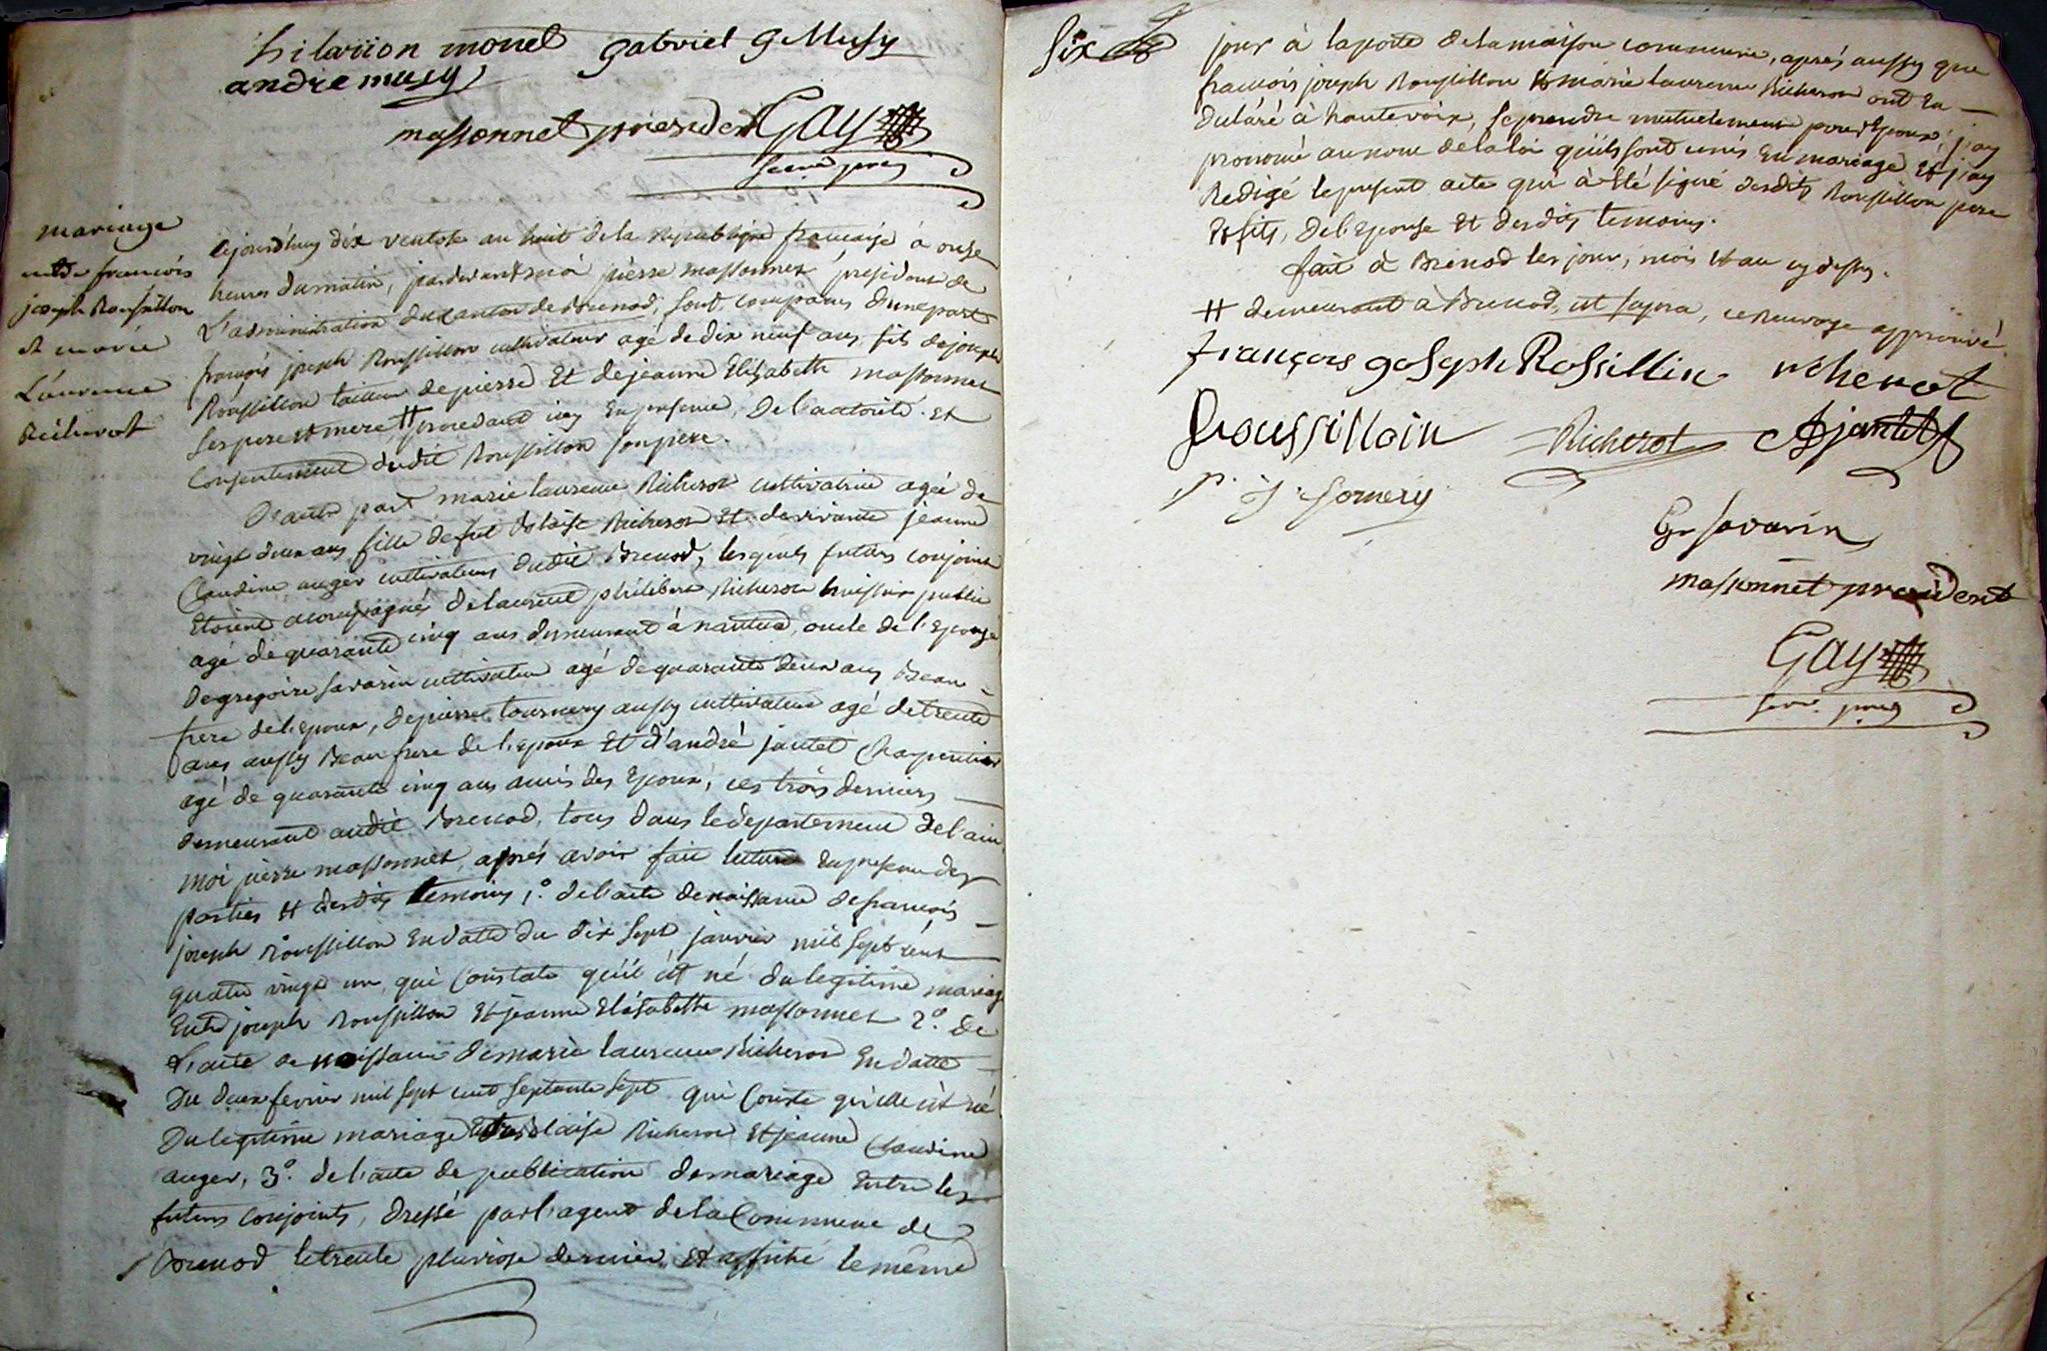 hilariion monet gabriel g Musy
andre musy
massonnet president Gay
secre. prov
mariage
entre francois
joseph Roussillon
et marie
Laurence
Richerot
aujourd'huy dix ventose an huit de la Republique francaise à onze
heures du matin, pardevant moi pierre massonnet president de
L'administration du canton de Brenod, sont comparus d'une part
françois joseph Roussillon cultivateur agé de dix neuf ans, fils de joseph
Roussillon tailleur de pierre Et de jeanne Elizabeth massonnet
ses pere et mere # procedant icy En presence, De l'autorité Et
Consentement dudit Roussillon son pere.
D'autre part marie laurence Richerot cultivatrice agée de
vingt deux ans fille de fut Blaise Richerot Et de vivante jeanne
Claudine auger cultivateurs dudit Brenod, lesquels futurs conjoints
Etoient accompagnés de laurent philibert Richerot huissier public
agé de quarante cinq ans demeurant à nantua, oncle de l'Epouse
De gregoire savarin cultivateur agé de quarante deux ans Beau-
frere de l'epoux, de pierre tournery aussy cultivateur agé de trente
ans aussy Beau frere de l'epoux Et d'andré jantet Charpentier
agé de quarante cinq ans amis des Epoux, ces trois derniers
demeurant audit Brenod, tous dans le departement de l'ain,
moi pierre massonnet, aprés avoir fait lecture En presence des
parties et desdits temoins, 1.° de l'acte de naissance de francois
joseph Roussillon En datte du dix sept janvier mil sept cent
quatre vingt un, qui Constate qu'il est né du legitime mariage
Entre joseph Roussillon Et jeanne Elésabethe massonnet 2.° de
L'acte de naissance de marie laurence Richerot En datte
Du deux fevrier mil sept cent septante sept qui Conste qu'elle est né
Du legitime mariage Entre Blaise Richerot Et jeanne Claudine
auger, 3.° de l'acte de publication de mariage Entre les
futurs conjoints, dressé par l'agent de la Commune de
Brenod le trente pluviose dernier, Et affiché le même
six
jour à la porte de la maison commune, aprés aussy que
francois joseph Roussillon Et marie laurence Richerot ont Eu
declaré à haute voix, se prendre mutuelement pour Epoux, j'ay
prononcé au nom de la loi qu'ils sont unis En mariage Et j'ay
Redigé le present acte qui à Eté signé desdits Roussillon pere
Et fils, de l'Epouse Et desdits temoins.
fait à Brenod les jour, mois Et an cy dessus.
# demeurant à Brenod, ut supra, ce Renvoye approuvé
François goseph Rossillin Richerot
Roussilloin Richerot Ajantet
p. j. tornery
Gr savarin
massonnet president
Gay
secre. prov